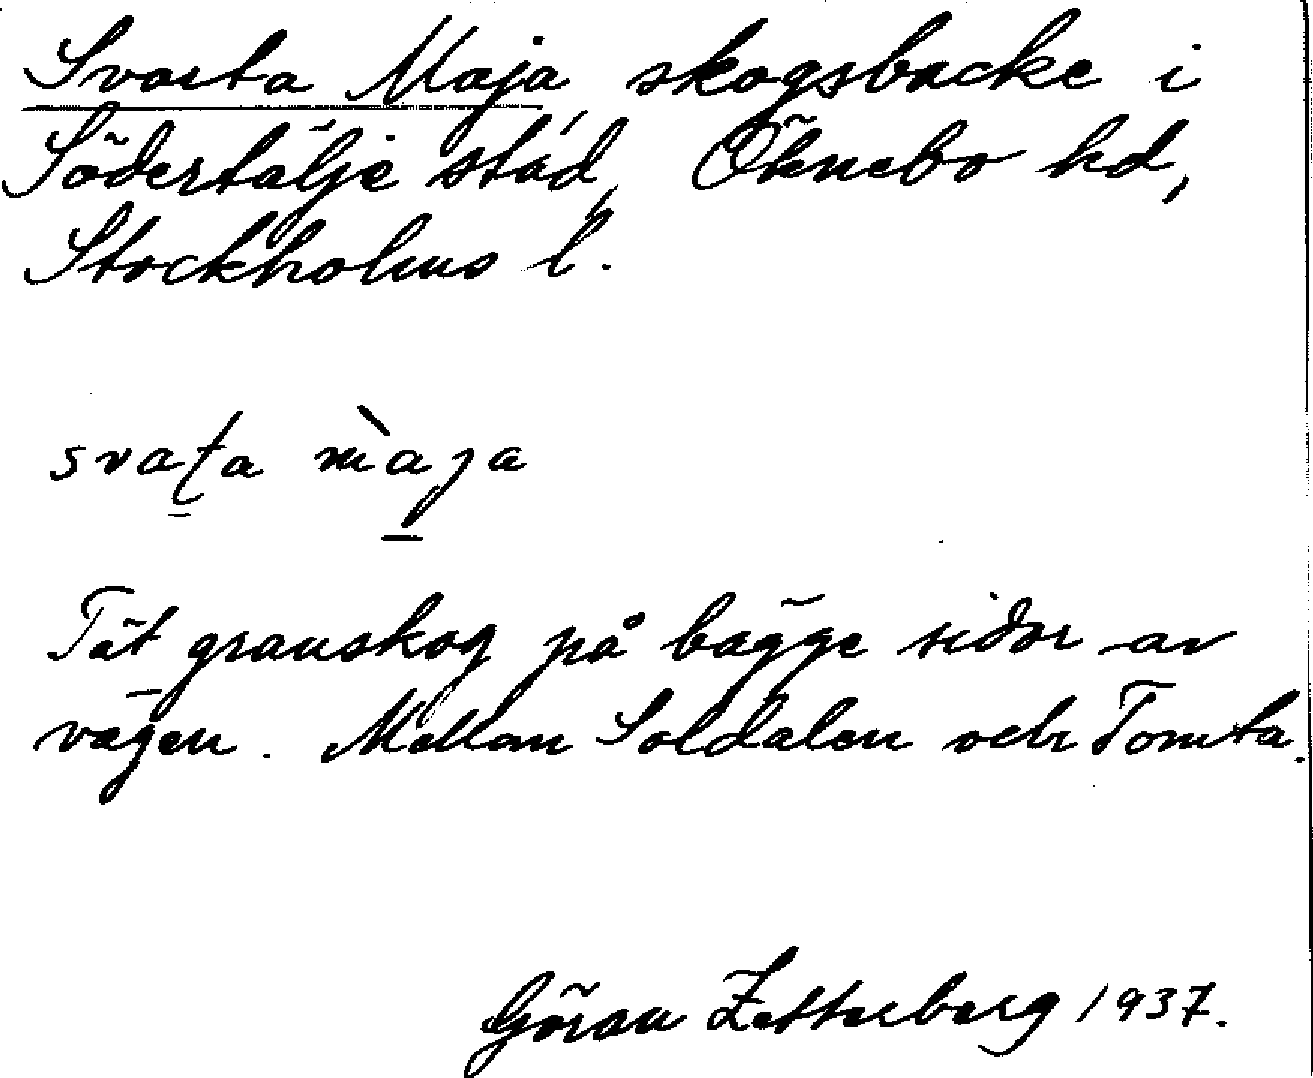 Svarta Maja, skogsbacke i
Södertälje stad, Öknebo hd,
Stockholms l.
svaṯa m̀aja
Tät granskog på bägge sidor av
vägen. Mellan Soldalen och Tomta.
Göran Zetterberg 1937.